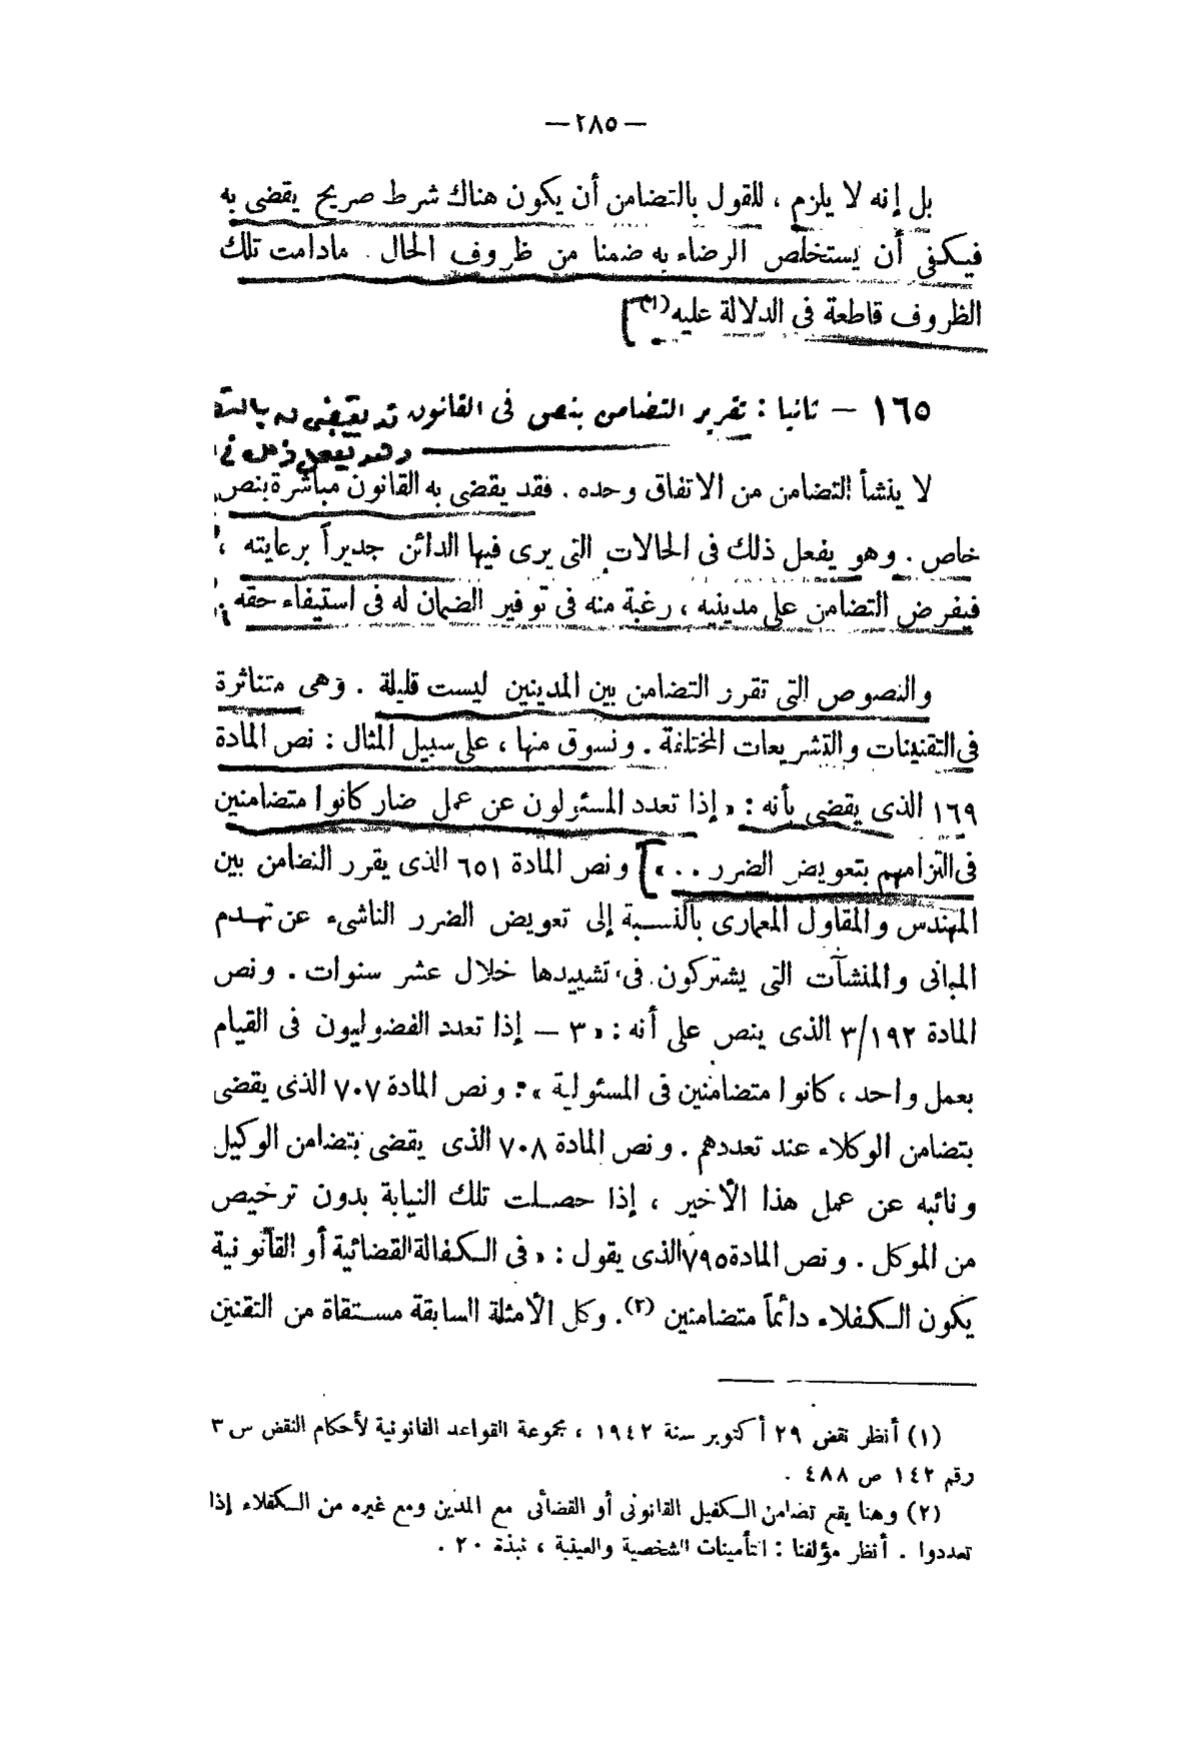 — ٢٨٥ —
بل إنه لا يلزم ، للقول بالتضامن أن يكون هناك شرط صريح يقضى به
فيكفى أن يستخلص الرضاء به ضمنا من ظروف الحال . مادامت تلك
الظروف قاطعة فى الدلالة عليه (١)]
١٦٥ – ثانيا : تقرير التضامن بنص فى القانون قد يقضى به بالتـ
وقد يفعل ذلك فى
لا ينشأ التضامن من الاتفاق وحده . فقد يقضى به القانون مباشرة بنص
خاص . وهو يفعل ذلك فى الحالات التى يرى فيها الدائن جديراً برعايته ،
فيفرض التضامن على مدينيه ، رغبة منه فى توفير الضمان له فى استيفاء حقه .
والنصوص التى تقرر التضامن بين المدينين ليست قليلة . وهى متناثرة
فى التقنينات والتشريعات المختلفة . ونسوق منها ، على سبيل المثال : نص المادة
١٦٩ الذى يقضى بأنه : « إذا تعدد المسئولون عن عمل ضار كانوا متضامنين
فى التزامهم بتعويض الضرر . . »] ونص المادة ٦٥١ الذى يقرر التضامن بين
المهندس والمقاول المعمارى بالنسبة إلى تعويض الضرر الناشىء عن تهدم
المبانى والمنشآت التى يشتركون فى تشييدها خلال عشر سنوات . ونص
المادة ٣/١٩٢ الذى ينص على أنه : « ٣ – إذا تعدد الفضوليون فى القيام
بعمل واحد ، كانوا متضامنين فى المسئولية » . ونص المادة ٧٠٧ الذى يقضى
بتضامن الوكلاء عند تعددهم . ونص المادة ٧٠٨ الذى يقضى بتضامن الوكيل
ونائبه عن عمل هذا الأخير ، إذا حصلت تلك النيابة بدون ترخيص
من الموكل . ونص المادة ٧٩٥ الذى يقول : « فى الكفالة القضائية أو القانونية
يكون الكفلاء دائماً متضامنين (٢) . وكل الأمثلة السابقة مستقاة من التقنين
(١) أنظر نقض ٢٩ أكتوبر سنة ١٩٤٢ ، مجموعة القواعد القانونية لأحكام النقض س ٣
رقم ١٤٢ ص ٤٨٨ .
(٢) وهنا يقع تضامن الكفيل القانونى أو القضائى مع المدين ومع غيره من الكفلاء إذا
تعددوا . أنظر مؤلفنا : التأمينات الشخصية والعينية ، نبذة ٢٠ .